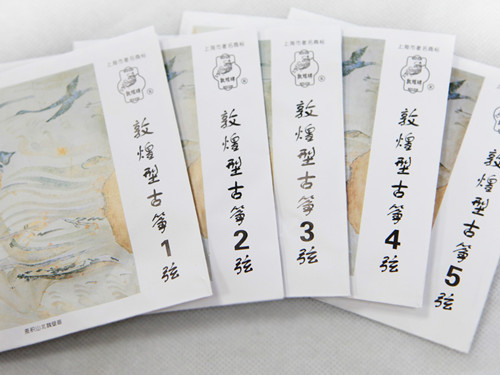 上海市著名商标
敦煌牌
敦煌型古筝1弦
上海市著名商标
敦煌牌
敦煌型古筝2弦
上海市著名商标
敦煌牌
敦煌型古筝3弦
上海市著名商标
敦煌牌
敦煌型古筝4弦
敦煌型古筝5弦